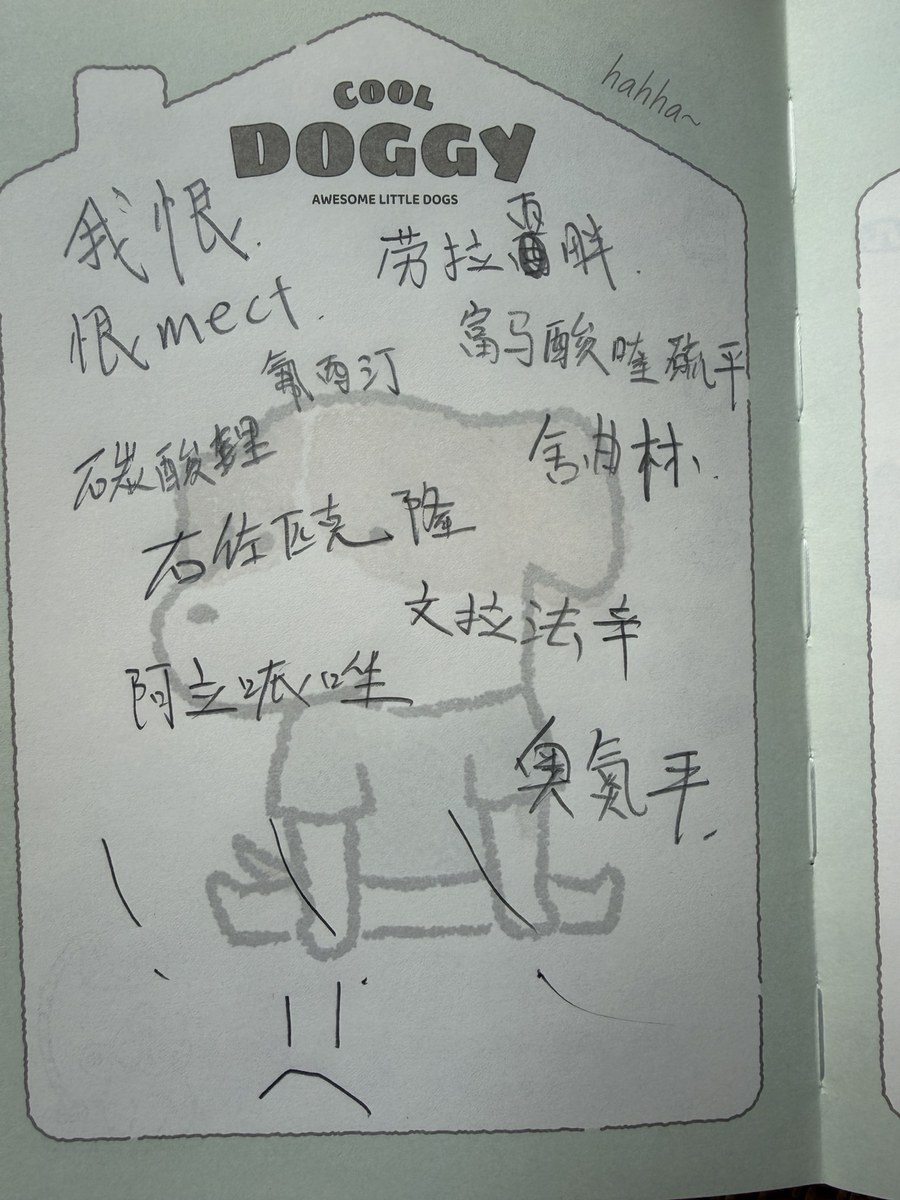 COOL
DOGGY
AWESOME LITTLE DOGS
hahha~
我恨.
劳拉西泮.
恨mect.
富马酸喹硫平
氟西汀
舍曲林.
碳酸锂
右佐匹克隆
文拉法辛
阿立哌唑
奥氮平.